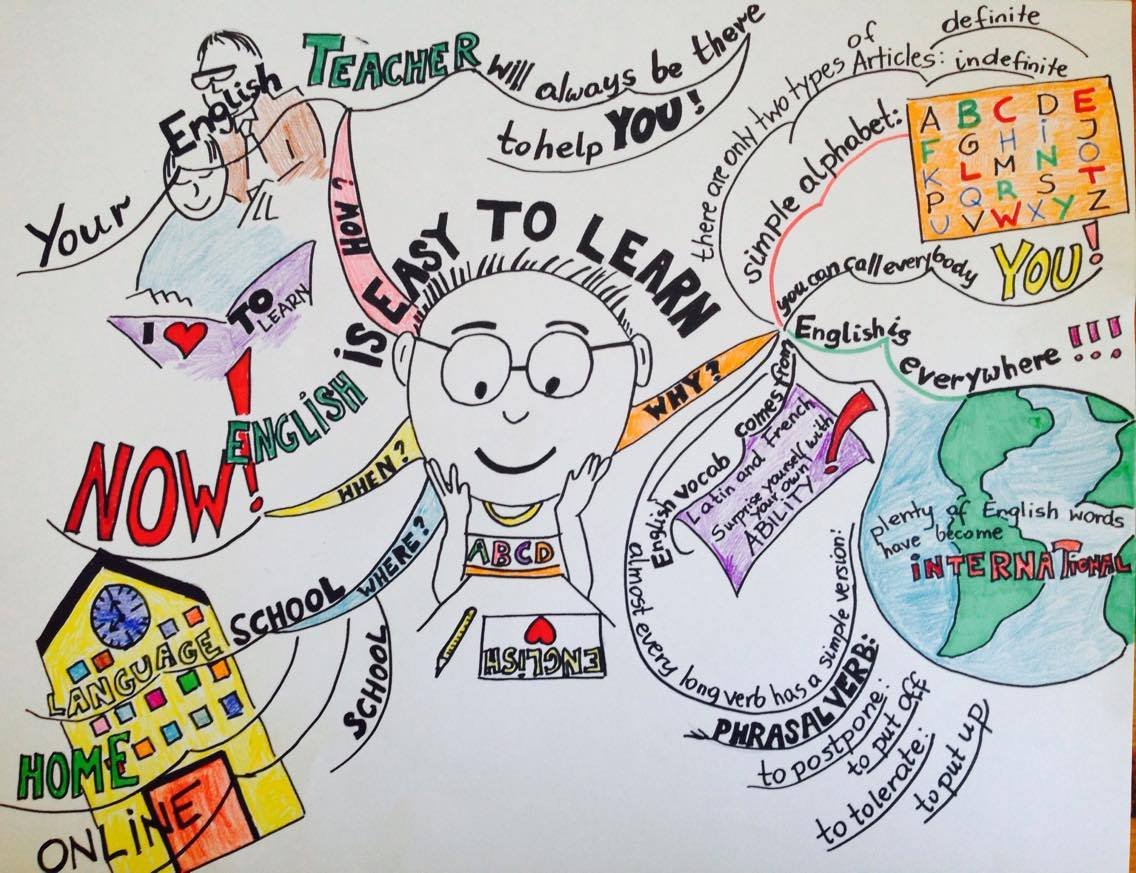 ENGLISH iS EASY TO LEARN
HOW?
Your English TEACHER will always be there
to help YOU!
I ❤ TO
LEARN
WHEN?
NOW!
WHERE?
SCHOOL
LANGUAGE SCHOOL
HOME
ONLINE
ABCD
❤
ENGLiSH
WHY?
there are only two types of Articles:
definite
indefinite
simple alphabet:
A B C D E
F G H i J
K L M N O
P Q R S T
U V W X Y Z
you can call everybody
YOU!
English is
everywhere !!!
plenty of English words
have become
iNTERNATiONAL
English vocab comes from
Latin and French
Surprise yourself with
your own
ABILITY!
almost every long verb has a simple version:
PHRASAL VERB:
to postpone:
to put off
to tolerate:
to put up